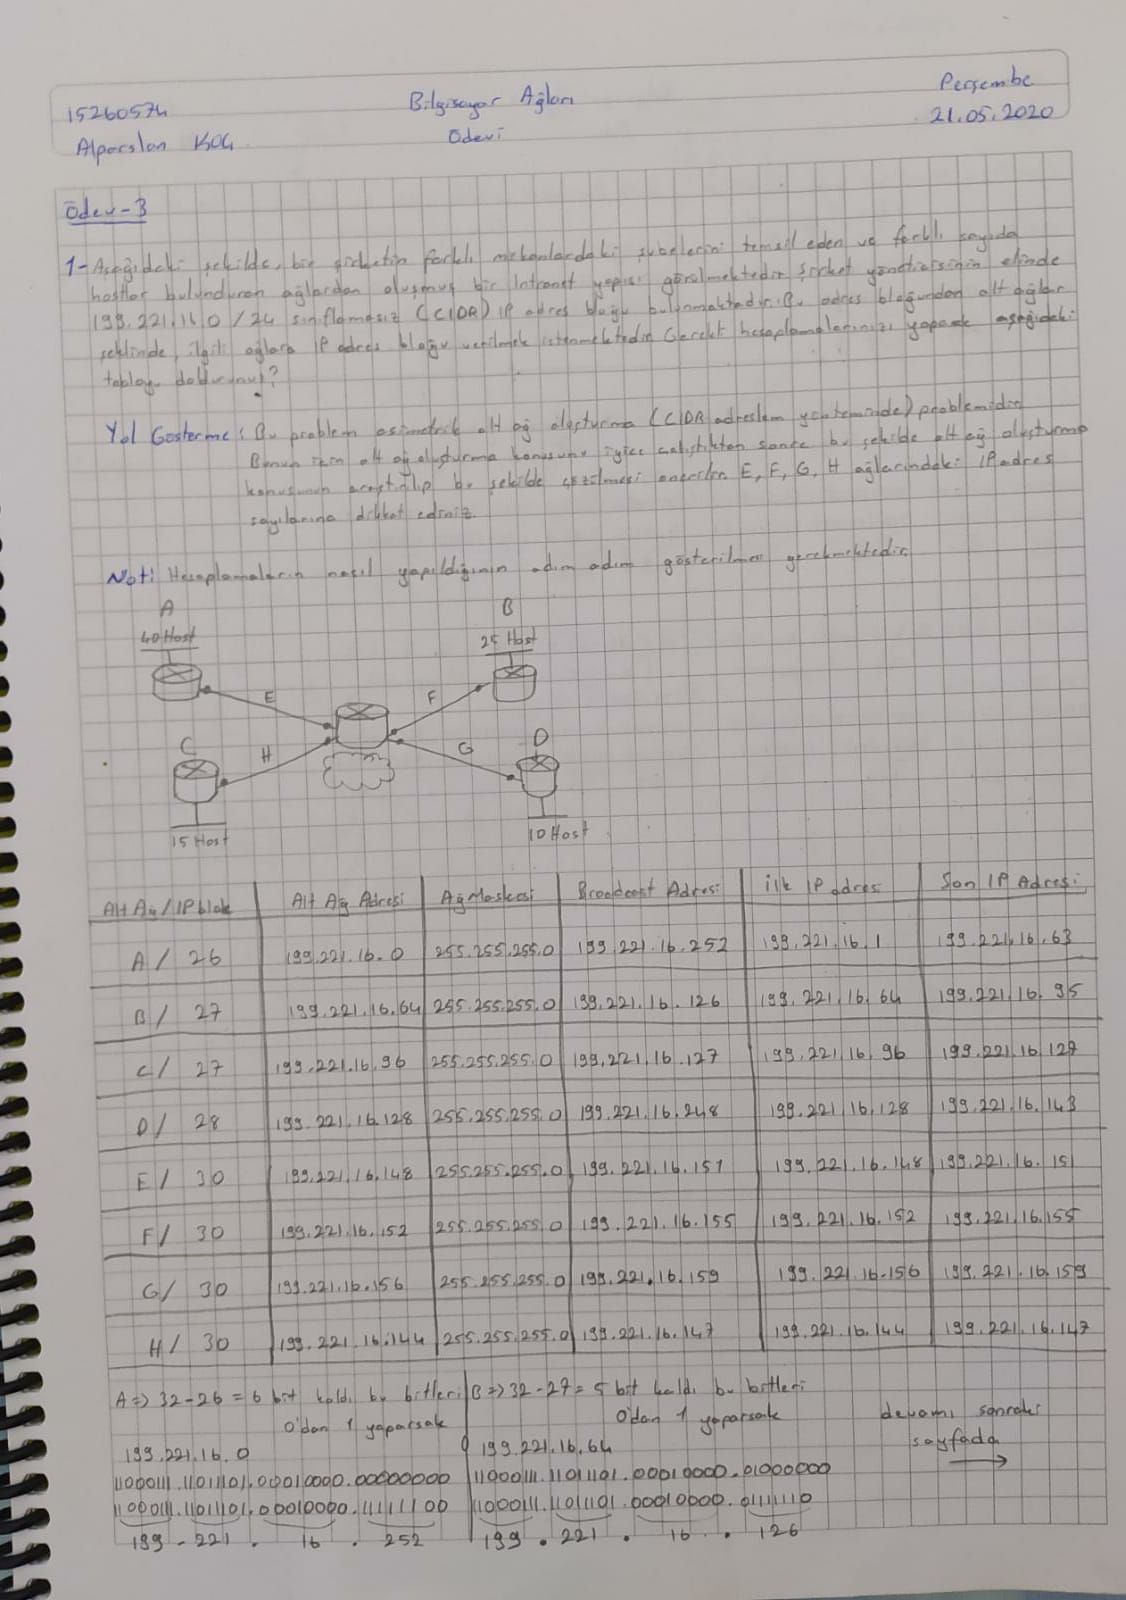 15260574
Alparslan KOÇ
Bilgisayar Ağları
Ödevi
Perşembe
21.05.2020
Ödev-3
1- Aşağıdaki şekilde, bir şirketin farklı mekanlardaki şubelerini temsil eden ve farklı sayıda
hostlar bulunduran ağlardan oluşmuş bir Intranet yapısı görülmektedir. Şirket yöneticisinin elinde
199.221.16.0/24 sınıflamasız (CIDR) IP adres bloğu bulunmaktadır. Bu adres bloğundan alt ağlar
şeklinde, ilgili ağlara IP adres bloğu verilmek istenmektedir. Gerekli hesaplamalarınızı yaparak aşağıdaki
tabloyu doldurunuz?
Yol Gösterme: Bu problem asimetrik alt ağ oluşturma (CIDR adresleme yönteminde) problemidir.
Bunun için alt ağ oluşturma konusunu iyice çalıştıktan sonra bu şekilde alt ağ oluşturma
konusunun araştırılıp bu şekilde çözülmesi önerilir. E, F, G, H ağlarındaki IP adres
sayılarına dikkat ediniz.
Not: Hesaplamaların nasıl yapıldığının adım adım gösterilmesi gerekmektedir.
A
40 Host
B
25 Host
E
F
C
H
G
D
15 Host
10 Host
Alt Ağ / IP blok Alt Ağ Adresi Ağ Maskesi Broadcast Adresi İlk IP adresi Son IP Adresi
A / 26 199.221.16.0 255.255.255.0 199.221.16.252 199.221.16.1 199.221.16.63
B / 27 199.221.16.64 255.255.255.0 199.221.16.126 199.221.16.64 199.221.16.95
C / 27 199.221.16.96 255.255.255.0 199.221.16.127 199.221.16.96 199.221.16.127
D / 28 199.221.16.128 255.255.255.0 199.221.16.248 199.221.16.128 199.221.16.143
E / 30 199.221.16.148 255.255.255.0 199.221.16.151 199.221.16.148 199.221.16.151
F / 30 199.221.16.152 255.255.255.0 199.221.16.155 199.221.16.152 199.221.16.155
G / 30 199.221.16.156 255.255.255.0 199.221.16.159 199.221.16.156 199.221.16.159
H / 30 199.221.16.144 255.255.255.0 199.221.16.147 199.221.16.144 199.221.16.147
A => 32-26 = 6 bit kaldı bu bitleri
0'dan 1 yaparsak
199.221.16.0
11000111.11011101.00010000.00000000
11000111.11011101.00010000.11111100
199 . 221 . 16 . 252
B => 32-27 = 5 bit kaldı bu bitleri
0'dan 1 yaparsak
199.221.16.64
11000111.11011101.00010000.01000000
11000111.11011101.00010000.01111110
199 . 221 . 16 . 126
devamı sonraki
sayfada